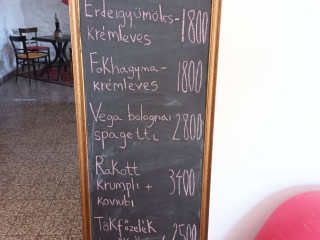 Erdeigyümölcs-
krémleves 1800
Fokhagyma-
krémleves 1800
Vega bolognai
spagetti 2800
Rakott
krumpli + 3400
koviubi
Tökfőzelék
2500